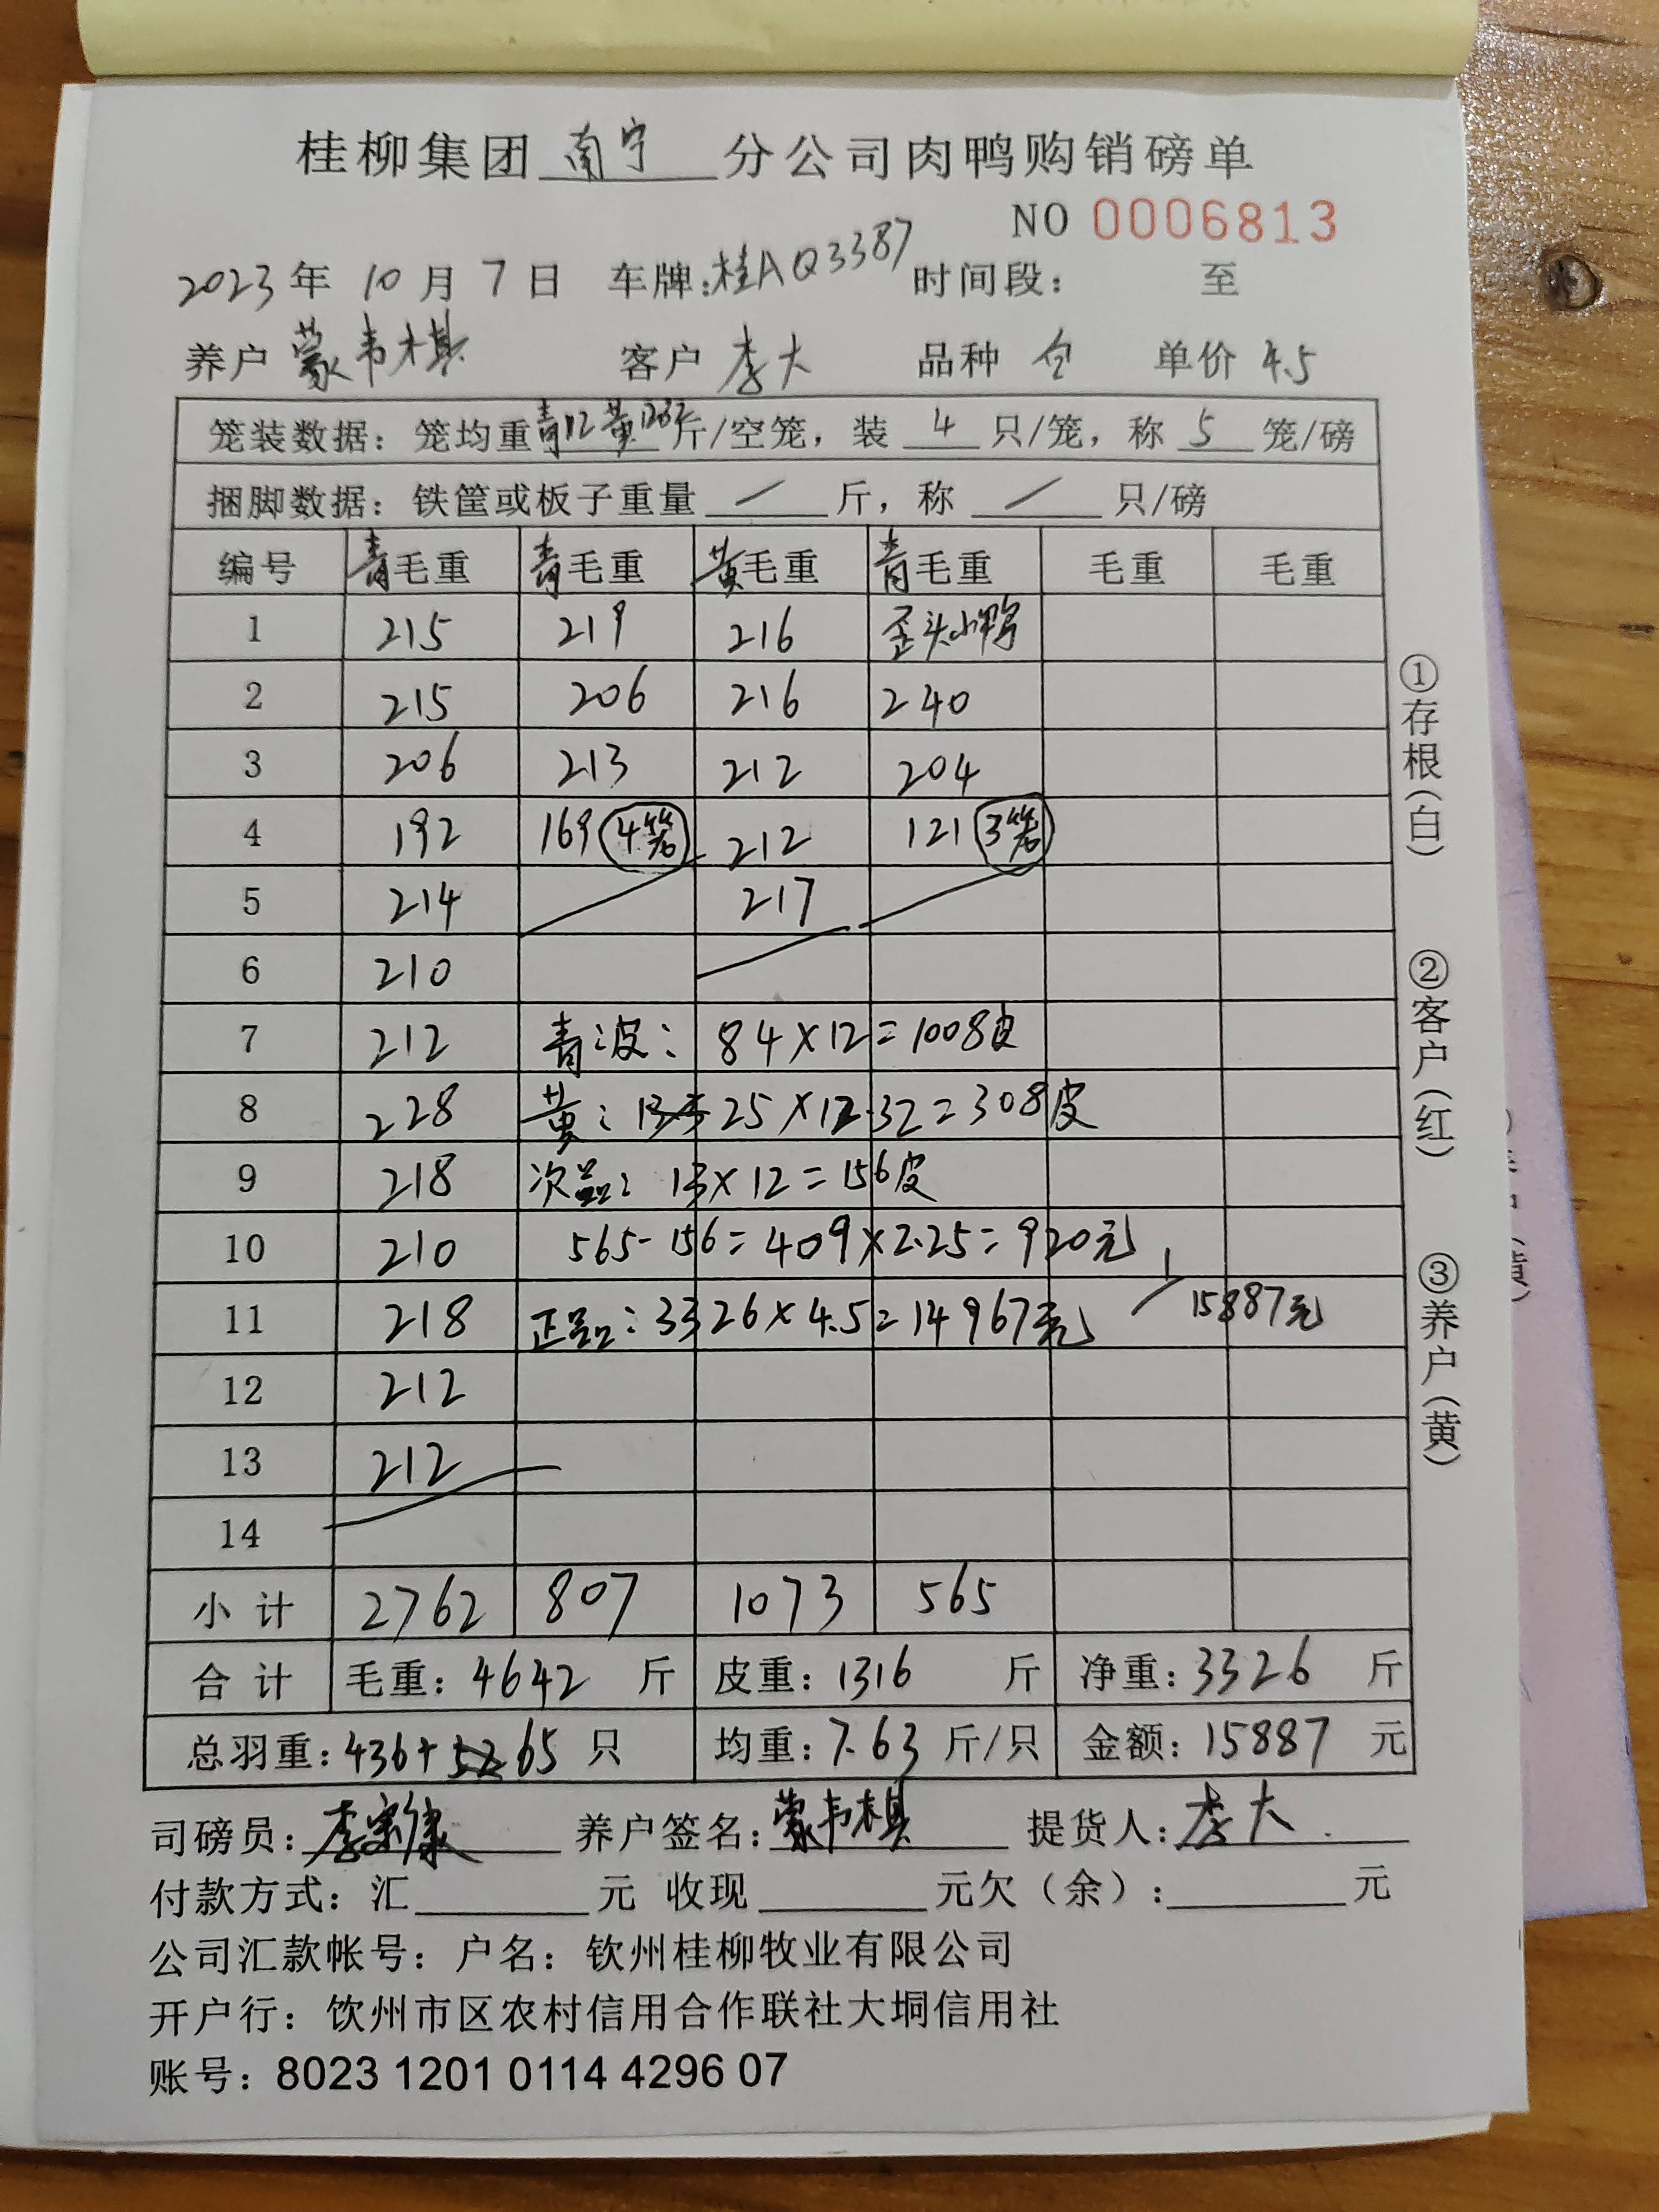 桂柳集团 南宁 分公司肉鸭购销磅单
NO 0006813
2023年 10月 7日 车牌:桂AQ3387 时间段: 至
养户 蒙韦棋 客户 李大 品种 仝 单价 4.5
笼装数据: 笼均重青12 黄12.32斤/空笼, 装 4 只/笼, 称 5 笼/磅
捆脚数据: 铁筐或板子重量 / 斤, 称 / 只/磅
编号 青毛重 青毛重 黄毛重 青毛重 毛重 毛重
1 215 219 216 歪头小鸭
2 215 206 216 240
3 206 213 212 204
4 192 169 4笼 212 121 3笼
5 214 217
6 210
7 212 青波: 84×12=1008皮
8 228 黄: 25×12.32=308皮
9 218 次品: 13×12=156皮
10 210 565-156=409×2.25=920元
11 218 正品:3326×4.5=14967元 15887元
12 212
13 212
14
小计 2762 807 1073 565
合计 毛重: 4642 斤 皮重: 1316 斤 净重: 3326 斤
总羽重: 436+65 只 均重: 7.63 斤/只 金额: 15887 元
司磅员: 养户签名: 蒙韦棋 提货人: 李大
付款方式: 汇 元 收现 元欠(余): 元
公司汇款帐号: 户名: 钦州桂柳牧业有限公司
开户行: 饮州市区农村信用合作联社大垌信用社
账号: 8023 1201 0114 4296 07
①存根(白)
②客户(红)
③养户(黄)